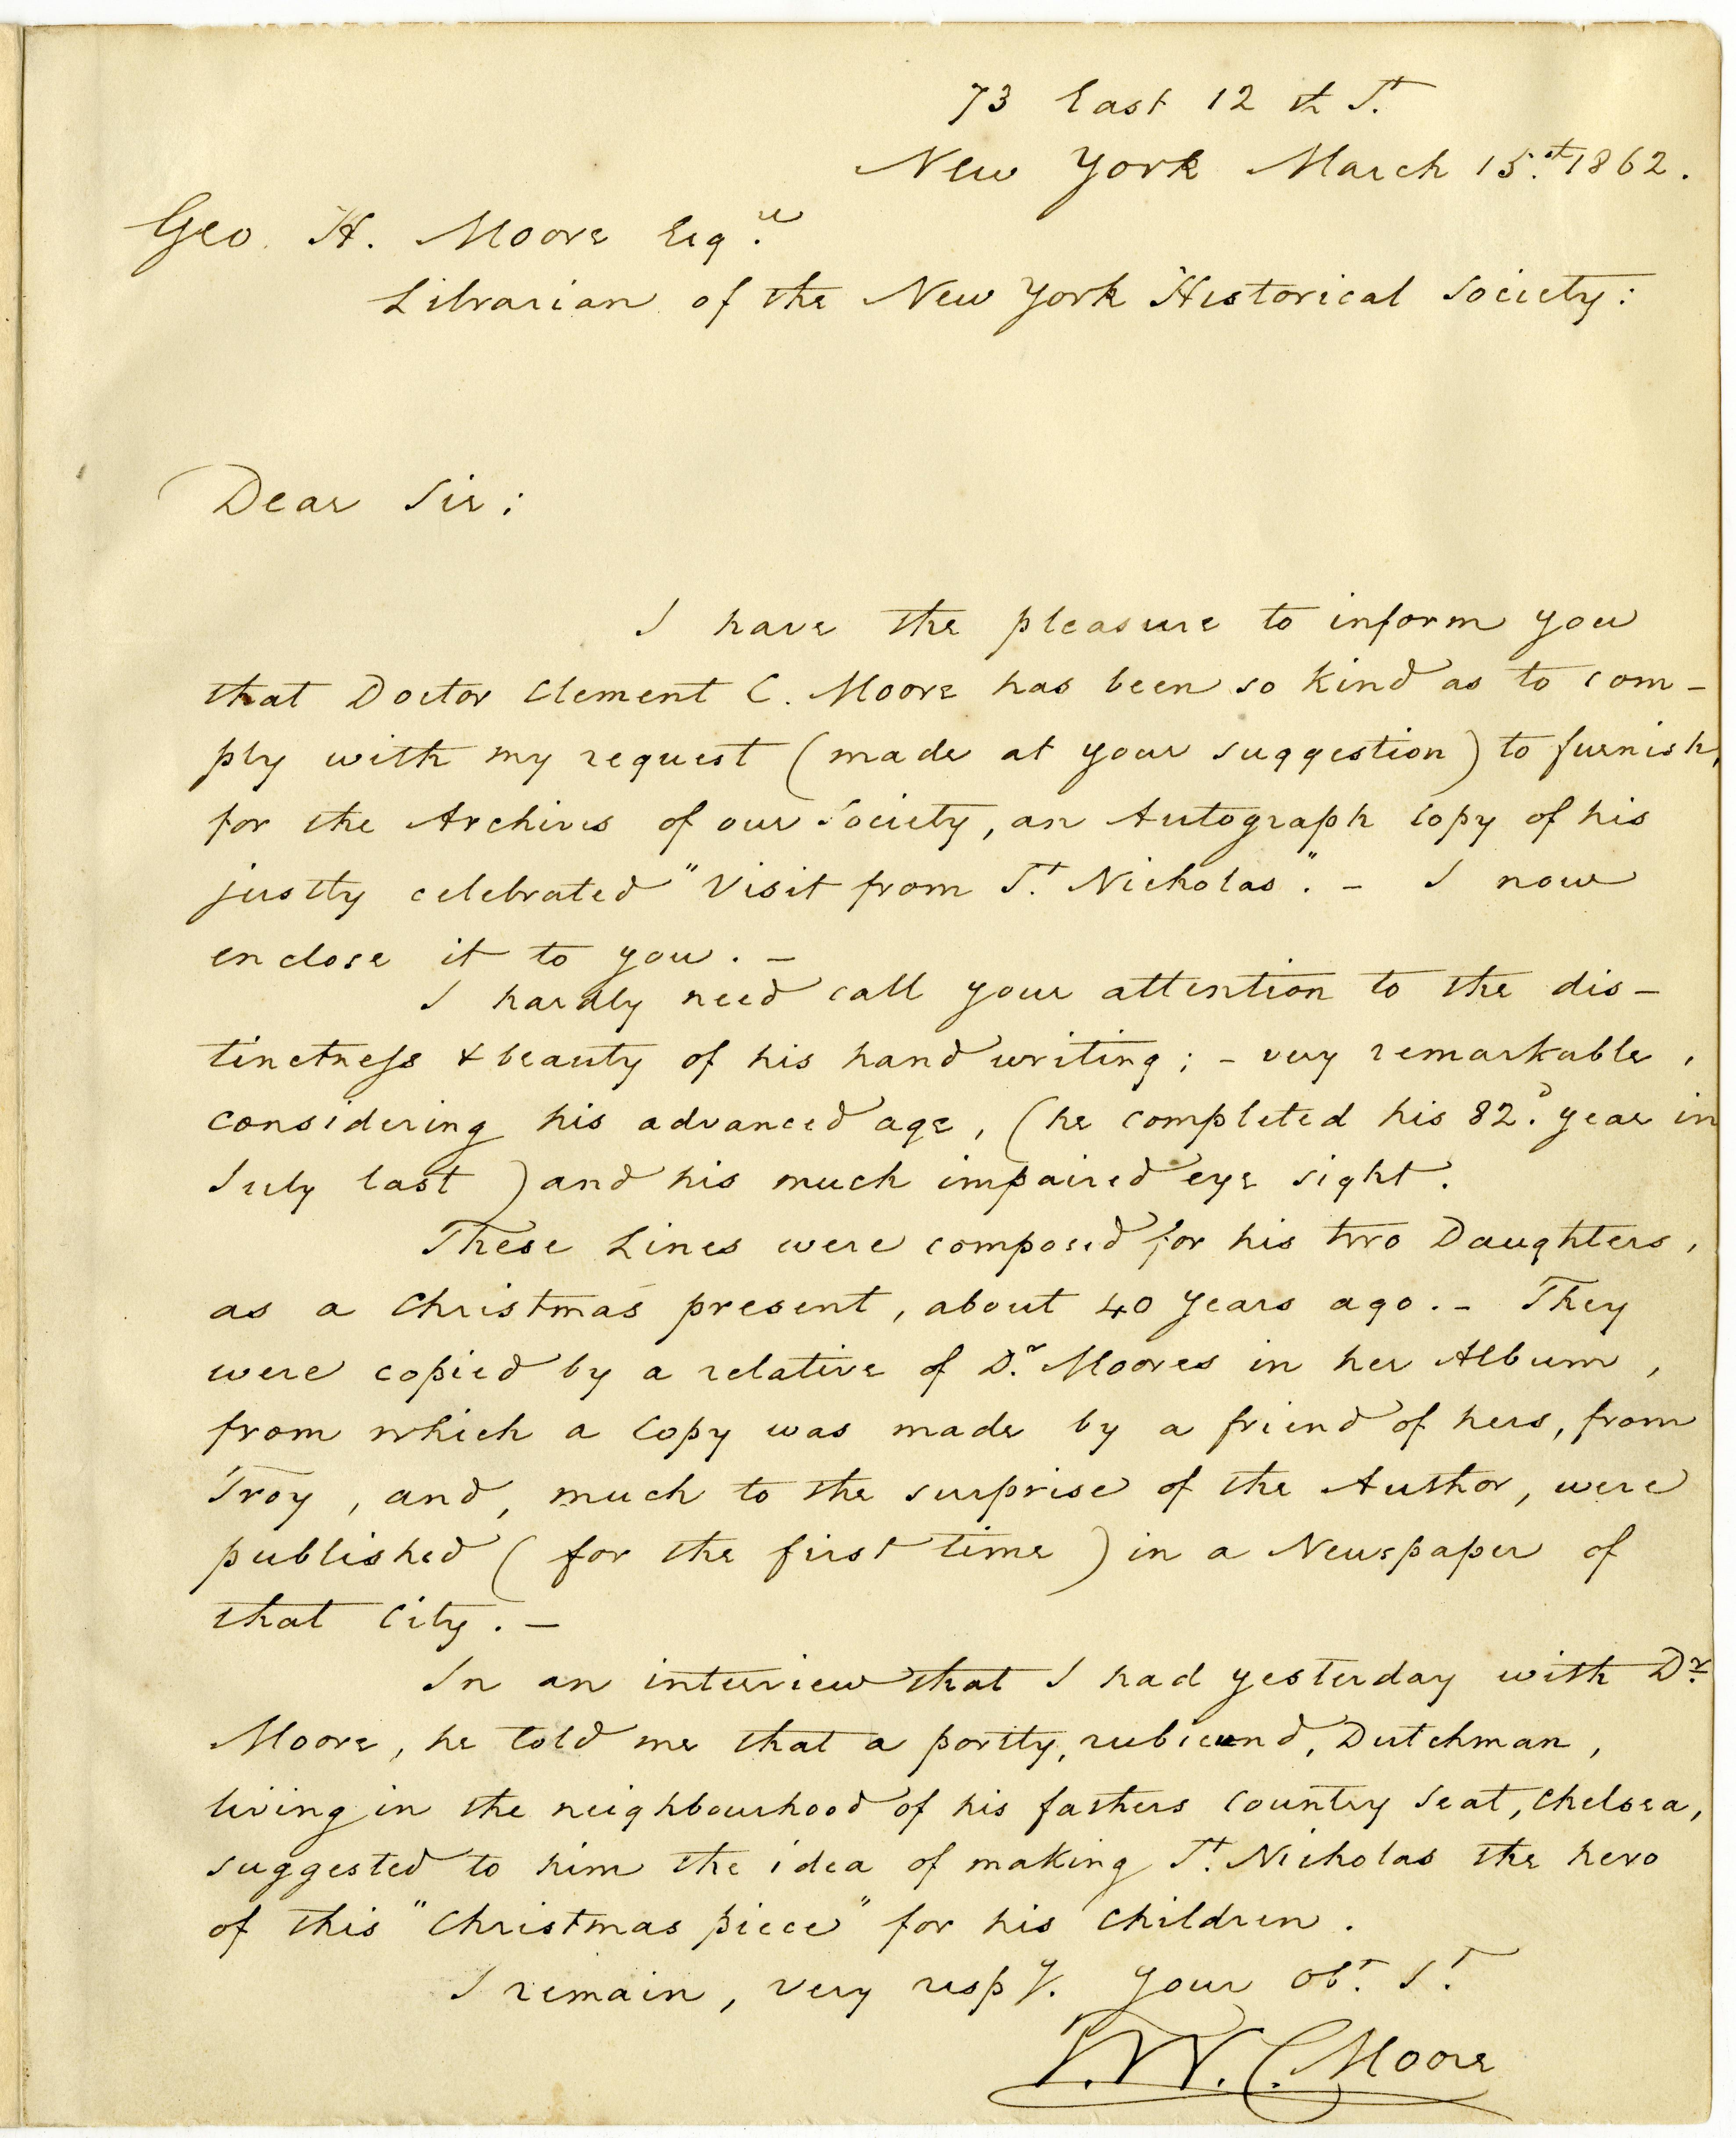 73 East 12th St.
New York March 15.th 1862.
Geo. H. Moore Esq.re
Librarian of the New York Historical Society:
Dear Sir:
I have the pleasure to inform you
that Doctor Clement C. Moore has been so kind as to com-
ply with my request (made at your suggestion) to furnish,
for the Archives of our Society, an Autograph Copy of his
justly celebrated "Visit from St. Nicholas". - I now
enclose it to you. -
I hardly need call your attention to the dis-
tinctness & beauty of his hand writing; - very remarkable,
considering his advanced age, (he completed his 82.d year in
July last) and his much impaired eye sight.
These Lines were composed for his two Daughters,
as a Christmas present, about 40 years ago. - They
were copied by a relative of Dr. Moores in her Album,
from which a Copy was made by a friend of hers, from
Troy, and, much to the surprise of the Author, were
published (for the first time) in a Newspaper of
that City. -
In an interview that I had yesterday with Dr.
Moore, he told me that a portly, rubicund, Dutchman,
living in the neighbourhood of his fathers country seat, Chelsea,
suggested to him the idea of making St. Nicholas the hero
of this "Christmas piece" for his children.
I remain, very respy. Your Obt. St.
T. W. C. Moore